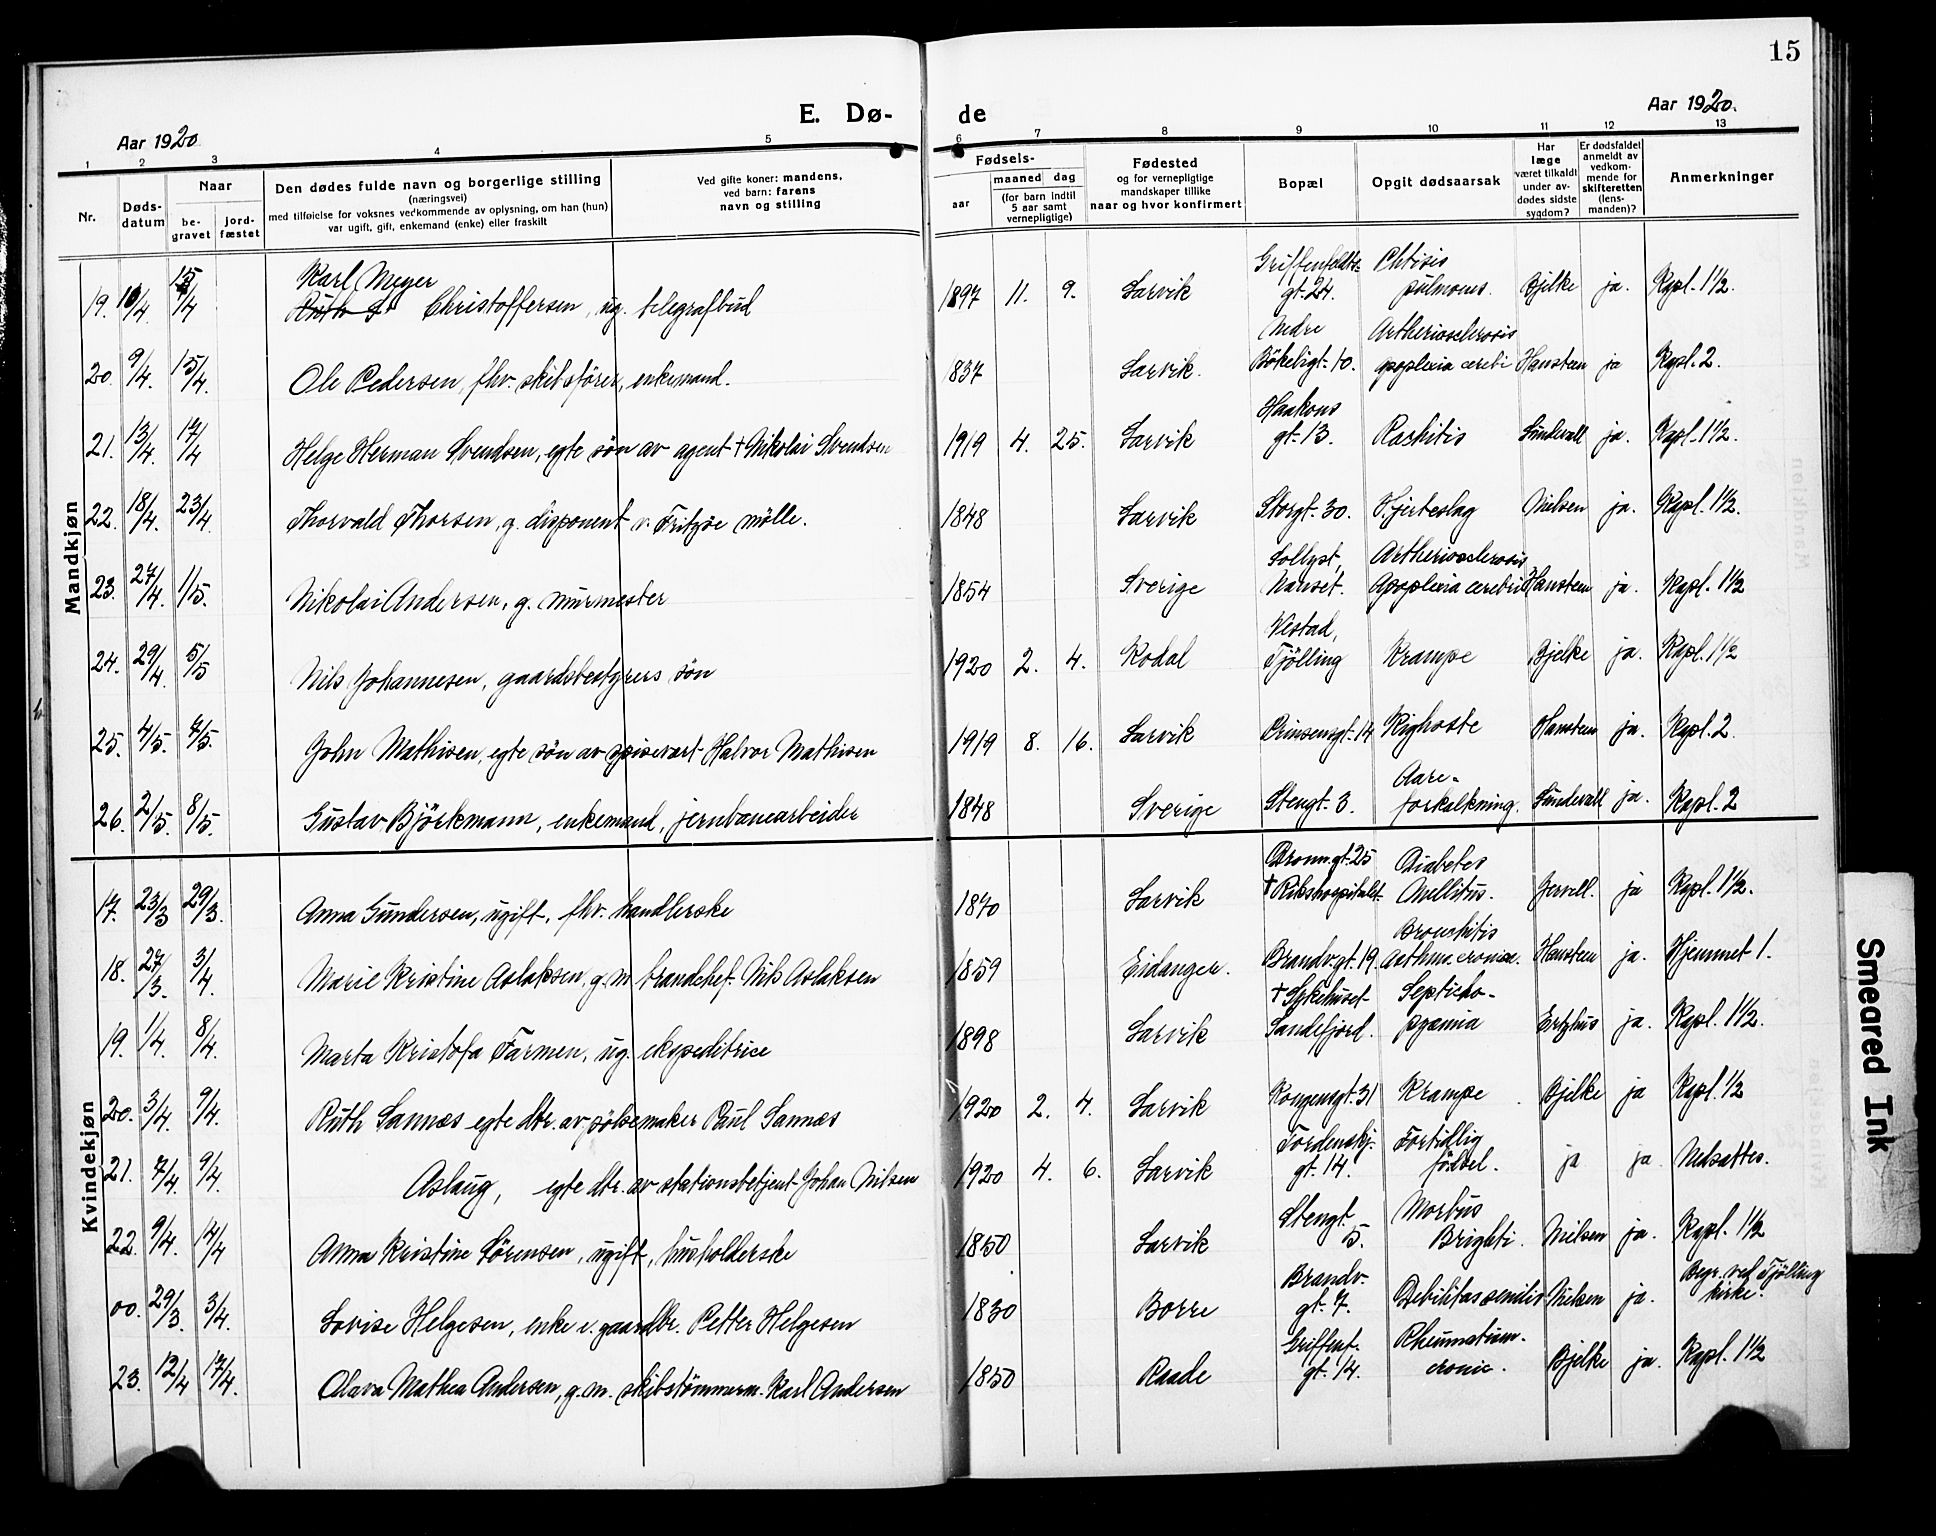 15
E. Dø- de
Aar 1920
Aar 1920.
1 2 3 4 5 6 7 8 9 10 11 12 13
Nr.
Døds-
datum
Naar
be-
gravet
jord-
fæstet
Den dødes fulde navn og borgerlige stilling
(næringsvei)
med tilføielse for voksnes vedkommende av oplysning, om han (hun)
var ugift, gift, enkemand (enke) eller fraskilt
Ved gifte koner: mandens,
ved barn: farens
navn og stilling
Fødsels-
aar
maaned dag
(for barn indtil
5 aar samt
vernepligtige)
Fødested
og for vernepligtige
mandskaper tillike
naar og hvor konfirmert
Bopæl
Opgit dødsaarsak
Har
læge
været tilkaldt
under av-
dødes sidste
sygdom?
Er dødsfaldet
anmeldt av
vedkom-
mende for
skifteretten
(lens-
manden)?
Anmerkninger
Mandkjøn
Karl Meyer Griffenfeldts- Phtisis
19. 10/4. 15/4 Ruth S Christoffersen, ug. telegrafbud 1897 11. 9. Larvik gt. 24. pulmonis. Bjelke ja. Kapl. 1½.
Nedre Artheriosclerosis
20. 9/4. 15/4. Ole Pedersen, fhv. skibsfører, enkemand. 1837 Larvik. Bökeligt. 10. apoplexia cerebi Hansteen ja Kapl. 2.
Haakons
21. 13/4. 17/4 Helge Herman Svendsen, egte søn av agent † Nikolai Svendsen 1919 4. 25. Larvik gt. 13. Rashitis Sundevall ja. Kapl. 1½.
22. 18/4. 23/4. Thorvald Thorsen, g. disponent v. Fritzøe mölle. 1848 Larvik Storgt. 30. Hjerteslag Nielsen ja. Kapl. 1½.
Sollyst, Artheriosclerosis
23. 27/4. 1/5. Nikolai Andersen, g. murmester 1854 Sverige Nanset. Apoplexia cerebri Hansteen ja. Kapl. 1½
Vestad,
24. 29/4. 5/5 Nils Johannesen, gaardsbestyrers søn 1920 2. 4. Kodal Tjölling Krampe Bjelke ja. Kapl. 1½
25. 4/5. 7/5. John Mathisen, egte søn av spisevert Halvor Mathisen 1919 8. 16. Larvik Prinsensgt. 14 Kighoste Hansteen ja. Kapl. 2.
Aare-
26. 2/5. 8/5. Gustav Björkmann, enkemand, jernbanearbeider 1848 Sverige Stengt. 3. forkalkning. Sundevall ja. Kapl. 2
Kvindekjøn
Bronn.gt. 25 Diabetes
17. 23/3 29/3. Anna Gundersen, ugift, fhv. handlerske 1870 Larvik † Rikshospitalet Mellitus. Jervell. ja Kapl. 1½.
Bronshitis
18. 27/3. 3/4. Marie Kristine Aslaksen, g. m. brandchef. Nils Aslaksen 1859 Eidanger. Brandv.gt. 19. Asthma cronica. Hansteen ja. Hjemmet 1.
† Sykehuset Septicho-
19. 1/4. 8/4. Marta Kristofa Farmen, ug. ekspeditrice 1898 Larvik Sandefjord. pyæmia Ertzhus ja. Kapl. 1½.
20. 3/4. 9/4. Ruth Sannæs egte dtr. av pölsemaker Paul Sannæs 1920 2. 4. Larvik Kongensgt. 31 Krampe Bjelke ja Kapl. ½
Tordenskj. Fortidlig
21. 7/4. 9/4. Aslaug, egte dtr. av stationsbetjent Johan Nilsen 1920 4. 6. Larvik gt. 14. födsel. ja ja Nedsattes.
Stengt. Morbus
22. 9/4. 14/4 Anna Kristine Sörensen, ugift, husholderske 1850 Larvik 5. Brighti. Nielsen ja. Kapl. 1½
Brandv. Begr. ved Tjölling
00. 29/3. 3/4. Lovise Helgesen, enke e. gaardbr. Petter Helgesen 1830 Borre gt. 7. Debilitas senilis Nielsen ja. kirke.
Griffenf. Rheumatism.
23. 12/4 17/4. Olava Mathea Andersen, g. m. skibstømmerm. Karl Andersen 1850 Raade gt. 14. cronic. Bjelke ja. Kapl. 1½
Smeared Ink